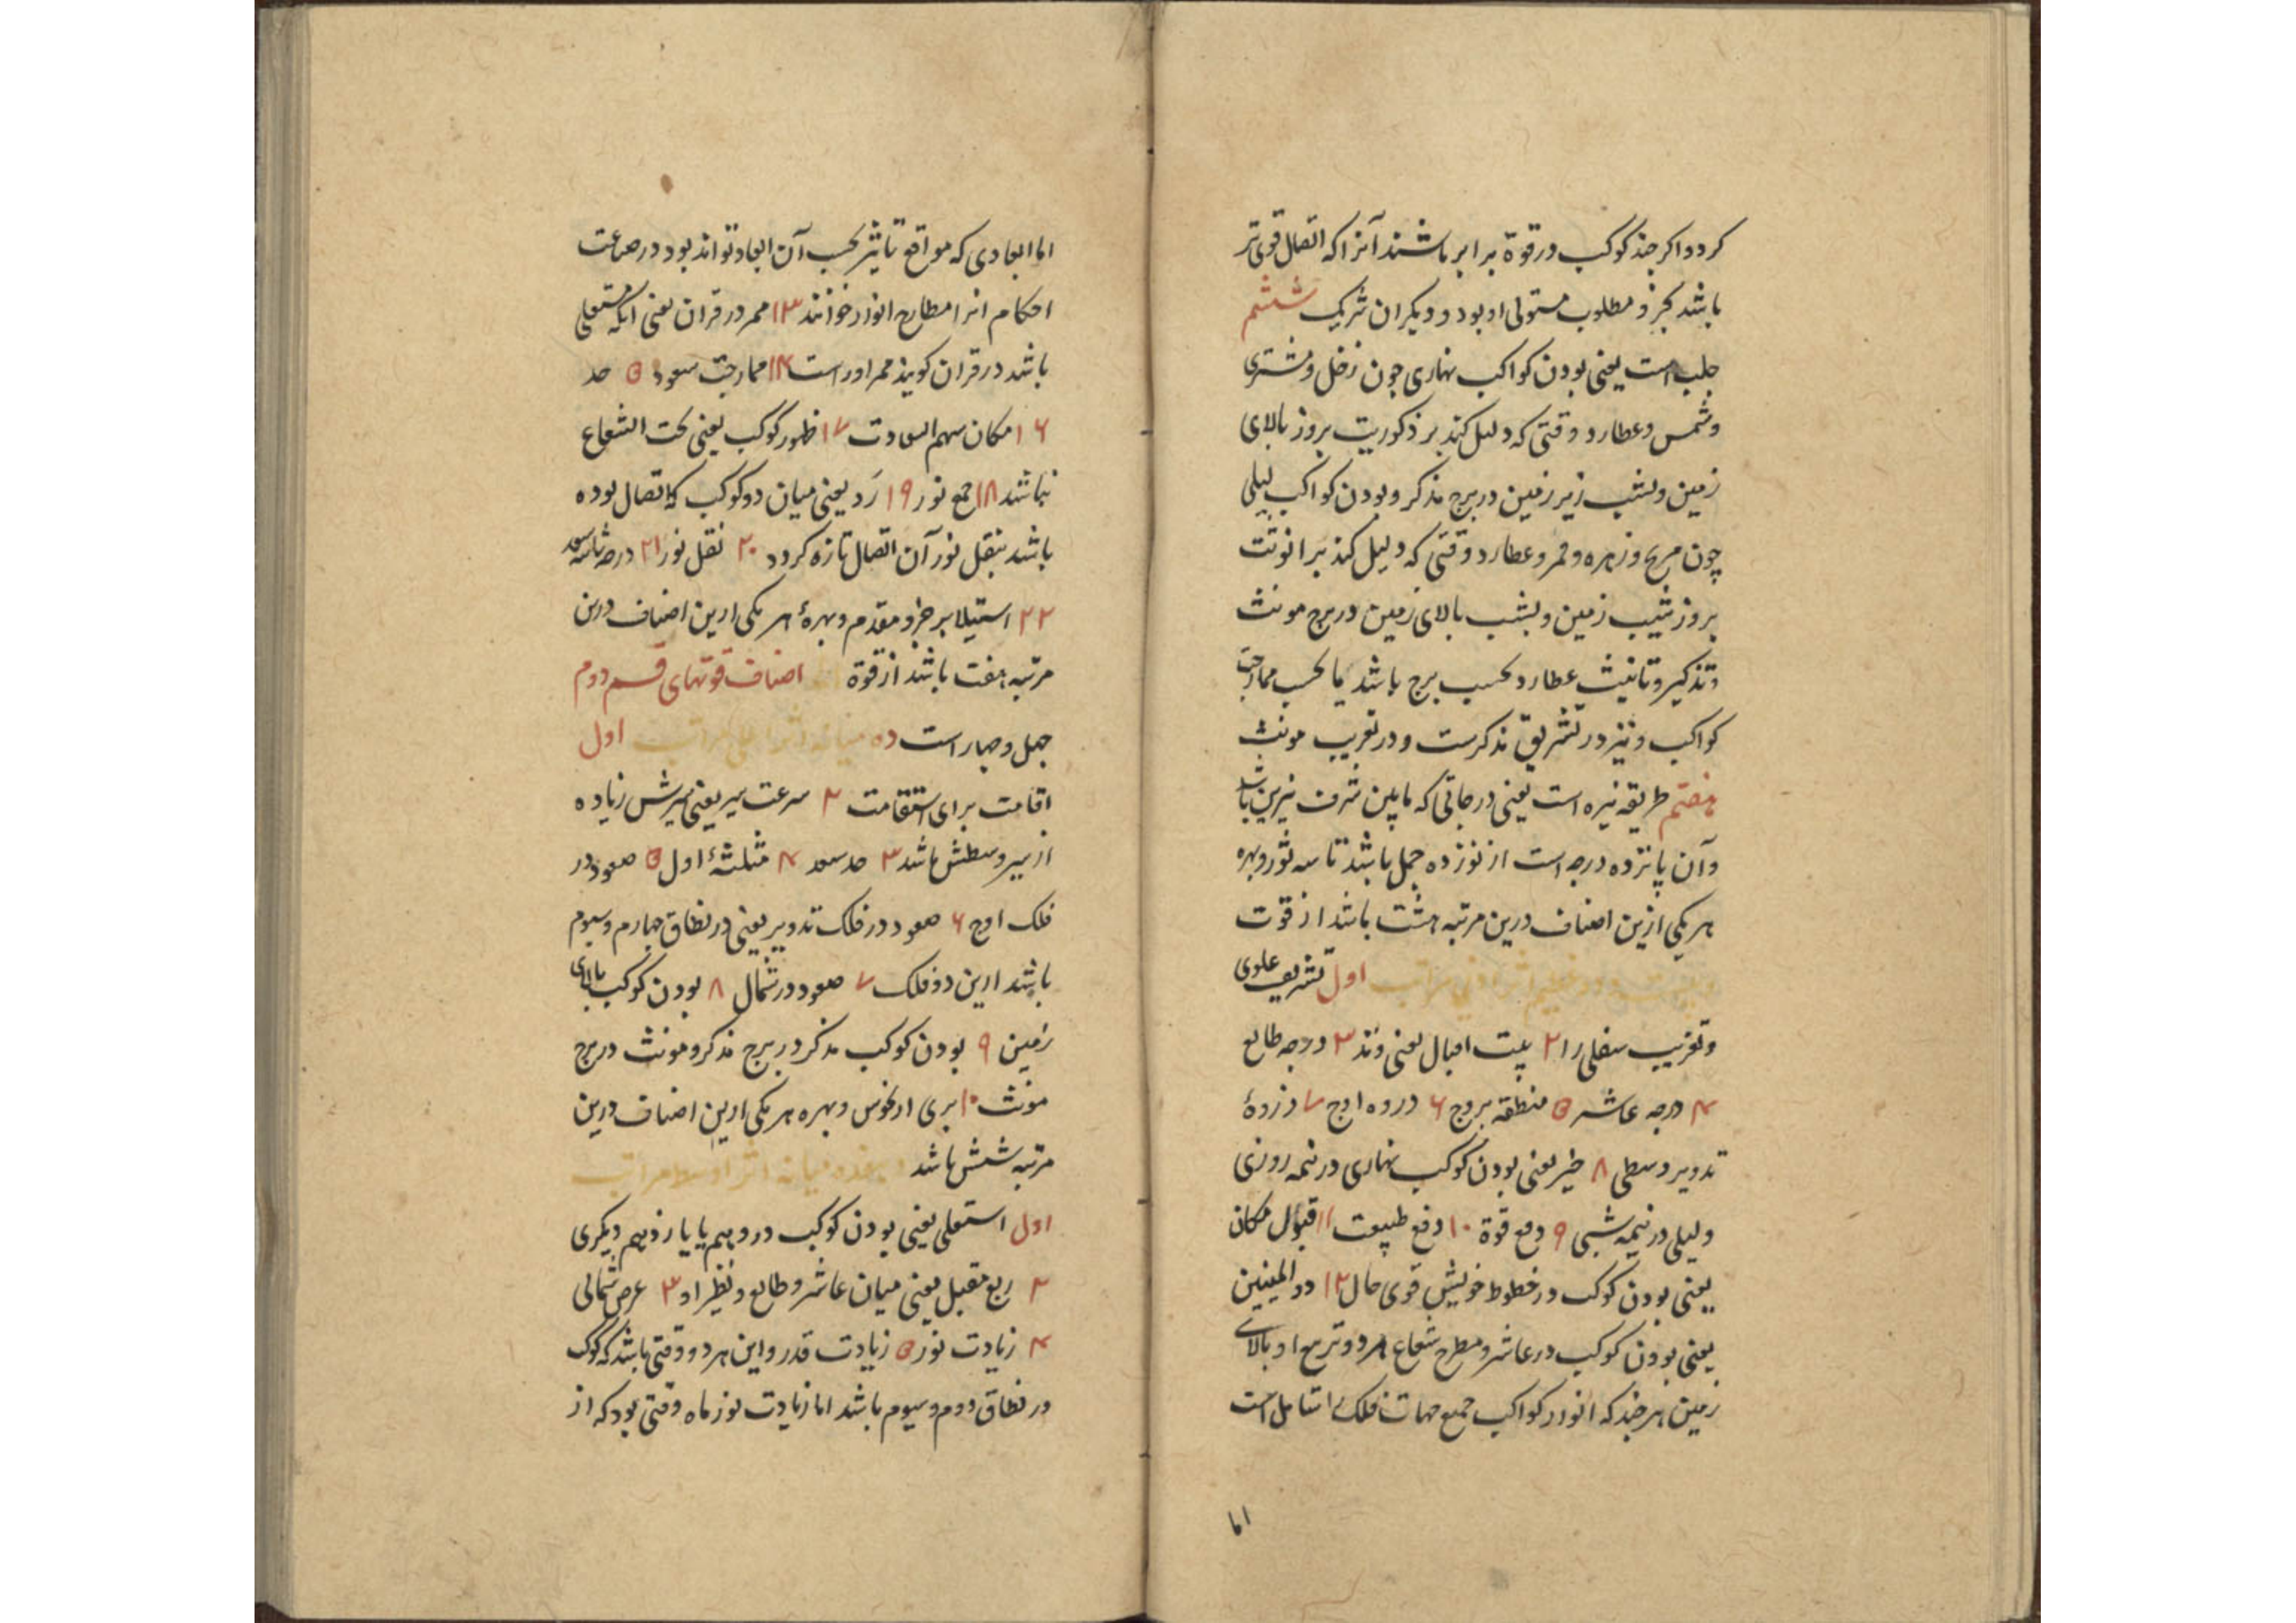 کردد اکر چند کوکب در قوة برابر باشند آنرا که اتصال قوی تر
باشد بجزو مطلوب مستولی او بود و دیکران شریک ششم
جلب است یعنی بودن کواکب نهاری چون زحل و مشتری
و شمس و عطارد وقتی که دلیل کند بر ذکوریت بروز بالای
زمین و بشب زیر زمین در برج مذکر و بودن کواکب لیلی
چون مریخ و زهره و قمر و عطارد وقتی که دلیل کند بر انوثت
بروز نشیب زمین و بشب بالای زمین در برج مونث
و تذکیر و تانیث عطارد بحسب برج باشد یا بحسب ممازجت
کواکب و نیز در تشریق مذکرست و در تغریب مونث
هفتم طریقه نیره است یعنی درجاتی که مابین شرف نیرین باشد
و آن پانزده درجه است از نوزده حمل باشد تا سه ثور و بهره
هر یکی ازین اصناف درین مرتبه هشت باشد از قوت
اول تشریق علوی
و تغریب سفلی را ۲ بیت اقبال یعنی وتد ۳ درجه طالع
۴ درجه عاشر ۵ منطقه بروج ۶ دروه اوج ۷ دزروهٔ
تدویر وسطی ۸ حیز یعنی بودن کوکب نهاری در نیمه روزی
و لیلی در نیمه شبی ۹ دفع قوة ۱۰ دفع طبیعت ۱۱ قبول مکان
یعنی بودن کوکب در خطوط خویش قوی حال ۱۲ دو الیمینین
یعنی بودن کوکب در عاشر و مطرح شعاع هر دو تربیع او بالای
زمین هر چند که انوار کواکب جمیع جهات فلک را شامل است
اما
اما ابعادی که مواقع تاثیر بحسب آن ابعاد تواند بود در صناعت
احکام انرا مطارح انوار خوانند ۱۳ ممر در قران یعنی آنکه مستعلی
باشد در قران کویند ممر اوراست ۱۴ ممازجت سعود ۱۵ حد
۱۶ مکان سهم السعادت ۱۷ ظهور کوکب یعنی تحت الشعاع
نباشد ۱۸ جمع نور ۱۹ رَد یعنی میان دو کوکب که اتصال بوده
باشد بنقل نور آن اتصال تازه کردد ۲۰ نقل نور ۲۱ درجه
۲۲ استیلا بر جزو مقدم و بهرهٔ هر یکی ازین اصناف درین
مرتبه هفت باشد از قوة اصناف قوتهای قسم دوم
چهل و چهار است ده میانه اثر اعلی مراتب اول
اقامت برای استقامت ۲ سرعت سیر یعنی سیرش زیاده
از سیر وسطش باشد ۳ حد سعد ۴ مثلثهٔ اول ۵ صعود در
فلک اوج ۶ صعود در فلک تدویر یعنی در نطاق چهارم و سیوم
باشد ازین دو فلک ۷ صعود در شمال ۸ بودن کوکب بالای
زمین ۹ بودن کوکب مذکر در برج مذکر و مونث در برج
مونث ۱۰ بری از نحوس و بهره هر یکی ازین اصناف درین
مرتبه شش باشد هفده میانه اثر اوسط مراتب
اول استعلی یعنی بودن کوکب در دهم یا یازدهم دیکری
۲ ربع مقبل یعنی میان عاشر و طالع و نظیر او ۳ عرض شمالی
۴ زیادت نور ۵ زیادت قدر و این هر دو وقتی باشد که کوکب
در نطاق دوم و سیوم باشد اما زیادت نور ماه وقتی بود که از